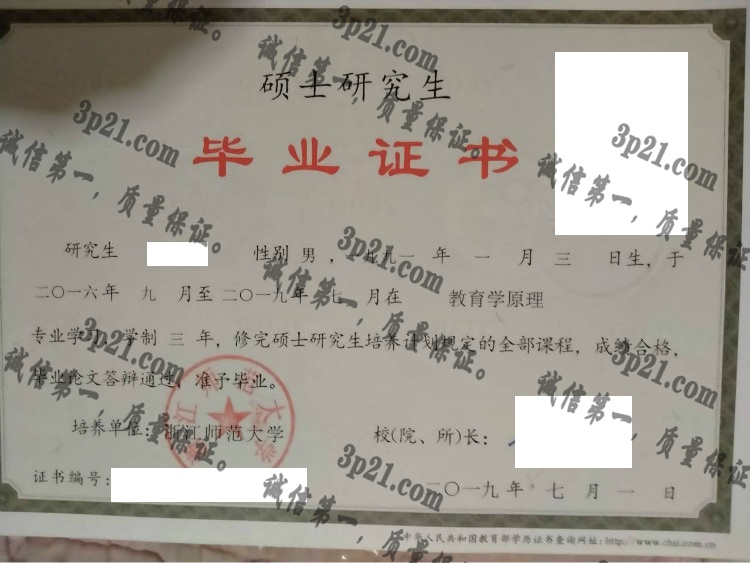 硕士研究生
毕业证书
研究生 性别 男 ，一九九一 年 一 月 三 日生，于
二〇一六年 九 月至 二〇一九年 七 月在 教育学原理
专业学习，学制 三 年，修完硕士研究生培养计划规定的全部课程，成绩合格，
毕业论文答辩通过，准予毕业。
培养单位：浙江师范大学 校(院、所)长：
证书编号： 二〇一九年 七 月 一 日
中华人民共和国教育部学历证书查询网址：http://www.chsi.com.cn
浙江师范大学
3p21.com
诚信第一，质量保证。
3p21.com
诚信第一，质量保证。
3p21.com
诚信第一，质量保证。
3p21.com
诚信第一，质量保证。
3p21.com
诚信第一，质量保证。
诚信第一，质量保证。
诚信第一，质量保证。
3p21.com
诚信第一，质量保证。